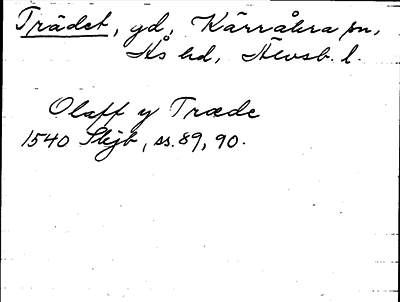 Trädet, gd, Kärråkra sn,
Ås hd, Älvsb. l.
Olaff y Træde
1540 Skjb, ss. 89, 90.